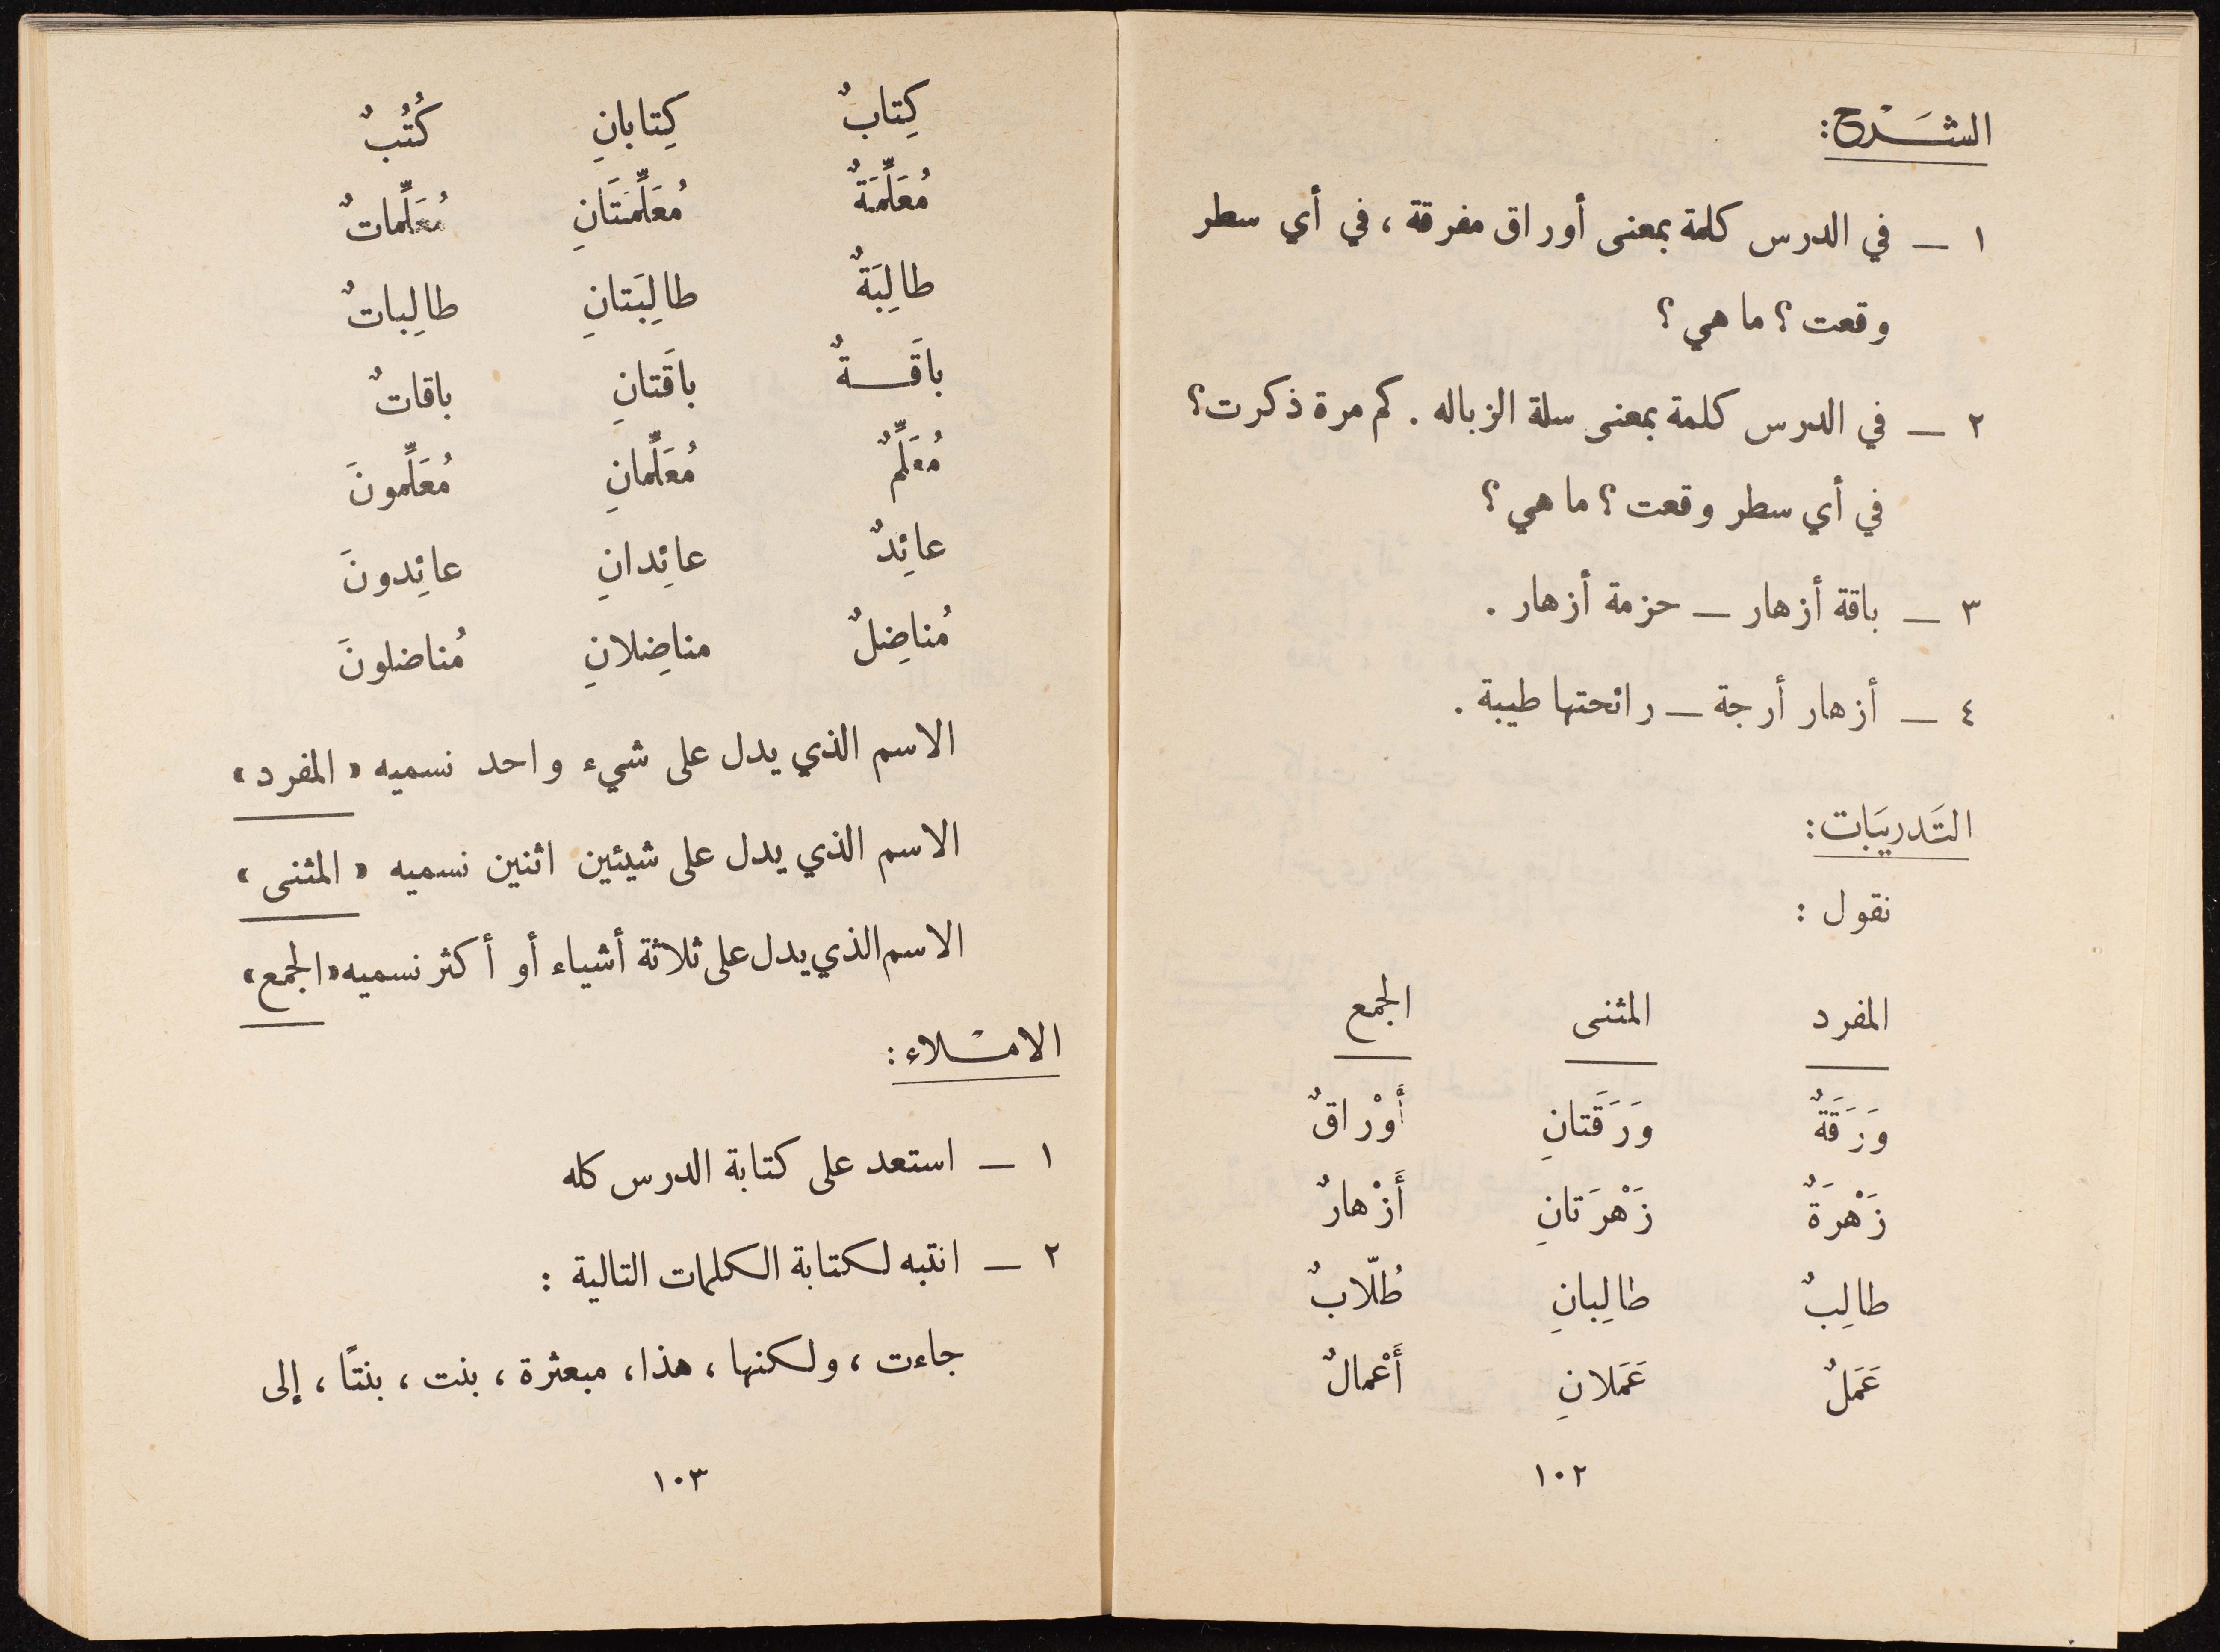 الشَّرْح:
١ – في الدرس كلمة بمعنى أوراق مفرقة ، في أي سطر
وقعت ؟ ما هي ؟
٢ – في الدرس كلمة بمعنى سلة الزباله . كم مرة ذكرت ؟
في أي سطر وقعت ؟ ما هي ؟
٣ – باقة أزهار – حزمة أزهار .
٤ – أزهار أرجة – رائحتها طيبة .
التَدريبَات:
نقول :
المفرد المثنى الجمع
وَرَقَةٌ وَرَقَتانِ أَوْراقٌ
زَهْرَةٌ زَهْرَتانِ أَزْهارٌ
طالِبٌ طالِبانِ طُلّابٌ
عَمَلٌ عَمَلانِ أَعْمالٌ
١٠٢
كِتابٌ كِتابانِ كُتُبٌ
مُعَلِّمَةٌ مُعَلِّمَتَانِ مُعَلِّماتٌ
طالِبَةٌ طالِبَتانِ طالِباتٌ
باقَـــةٌ باقَتانِ باقاتٌ
مُعَلِّمٌ مُعَلِّمانِ مُعَلِّمونَ
عائِدٌ عائِدانِ عائِدونَ
مُناضِلٌ مناضِلانِ مُناضلونَ
الاسم الذي يدل على شيء واحد نسميه « المفرد »
الاسم الذي يدل على شيئين اثنين نسميه « المثنى »
الاسم الذي يدل على ثلاثة أشياء أو أكثر نسميه «الجمع»
الامْـلاء:
١ – استعد على كتابة الدرس كله
٢ – انتبه لكتابة الكلمات التالية :
جاءت ، ولكنها ، هذا ، مبعثرة ، بنت ، بنتًا ، إلى
١٠٣